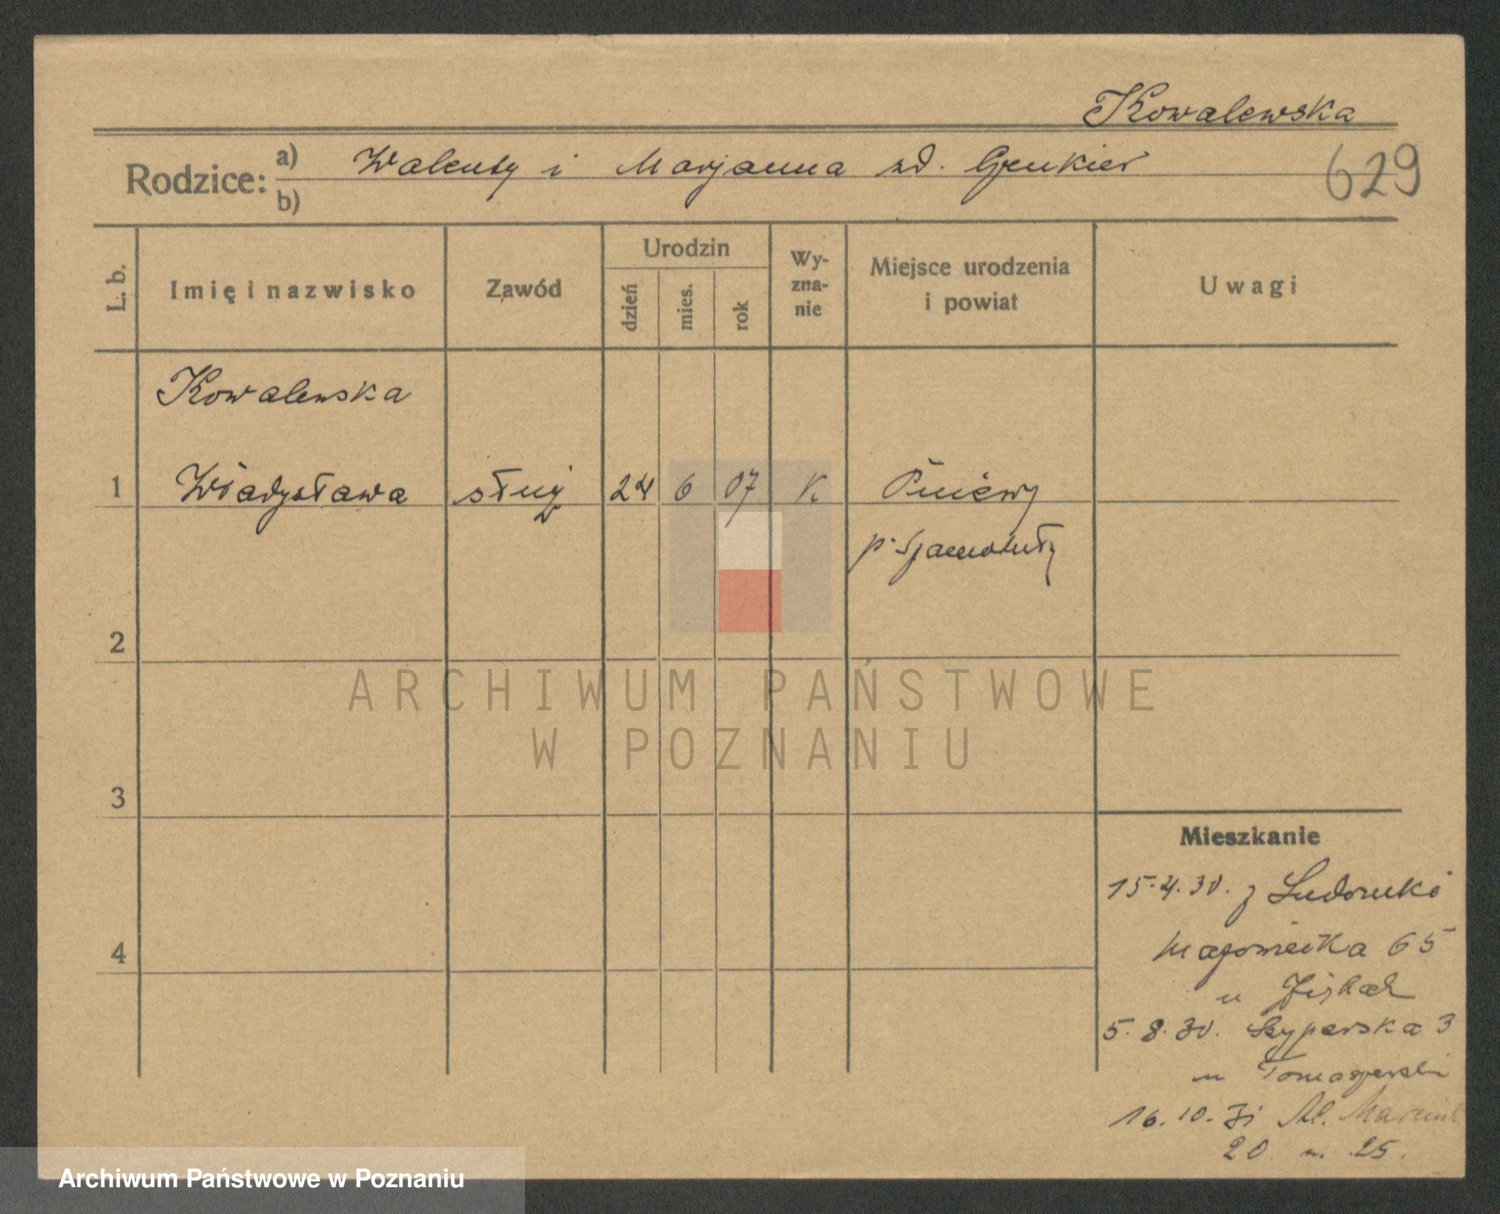 Kowalewska
Rodzice: a) Walenty i Marjanna zd.
b)
629
L. b.
Imię i nazwisko
Zawód
Urodzin
dzień
mies.
rok
Wy-
zna-
nie
Miejsce urodzenia
i powiat
Uwagi
Kowalewska
1 Władysława służ 24 6 07 K Pniewy
p. Szamotuły
2
3
4
ARCHIWUM PAŃSTWOWE
W POZNANIU
Mieszkanie
15.4.30. z
Mazowiecka 65
u
5.8.30. Szyperska 3
u Tomaszewski
16.10.31 Al. Marcink
20 m. 25.
Archiwum Państwowe w Poznaniu